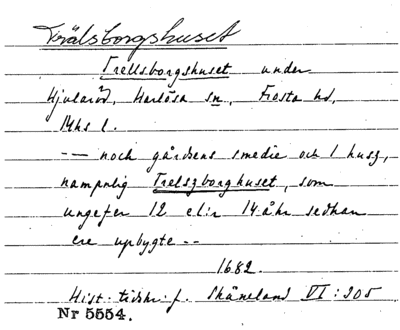 Trälsborgshuset
Trellsborgshuset under
Hjularöd, Harlösa sn., Frosta hd,
M hs l.
-- noch gårdzens smedie och 1 husz,
nampnlig Trelszborghuset, som
ungefer 12 el:r 14 åhr sedhan
ere upbygte --
1682.
Hist. tidskr. f. Skåneland VI:205
Nr 5554.